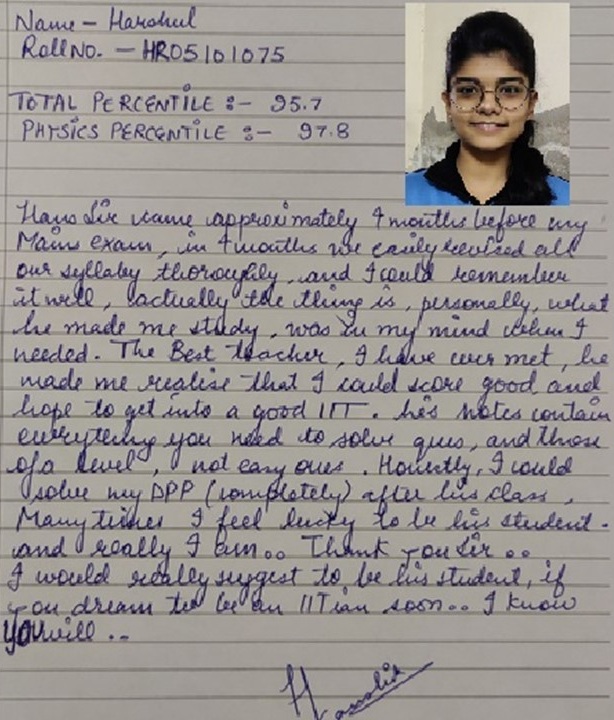 Name - Harshul
Roll No. - HR05101075
TOTAL PERCENTILE :- 95.7
PHYSICS PERCENTILE :- 97.8
Hans Sir came approximately 4 months before my
Mains exam, in 4 months we easily revised all
our syllaby thoroughly, and I could remember
it well, actually the thing is, personally, what
he made me study, was in my mind when I
needed. The Best teacher, I have ever met, he
made me realise that I could score good and
hope to get into a good IIT. he's notes contain
everything you need to solve ques, and those
of a level, not easy ones. Honestly, I could
solve my DPP (completely) after his class,
Many times I feel lucky to be his student.
and really I am.. Thank you Sir..
I would really suggest to be his student, if
you dream to be an IITian soon.. I know
you will ..